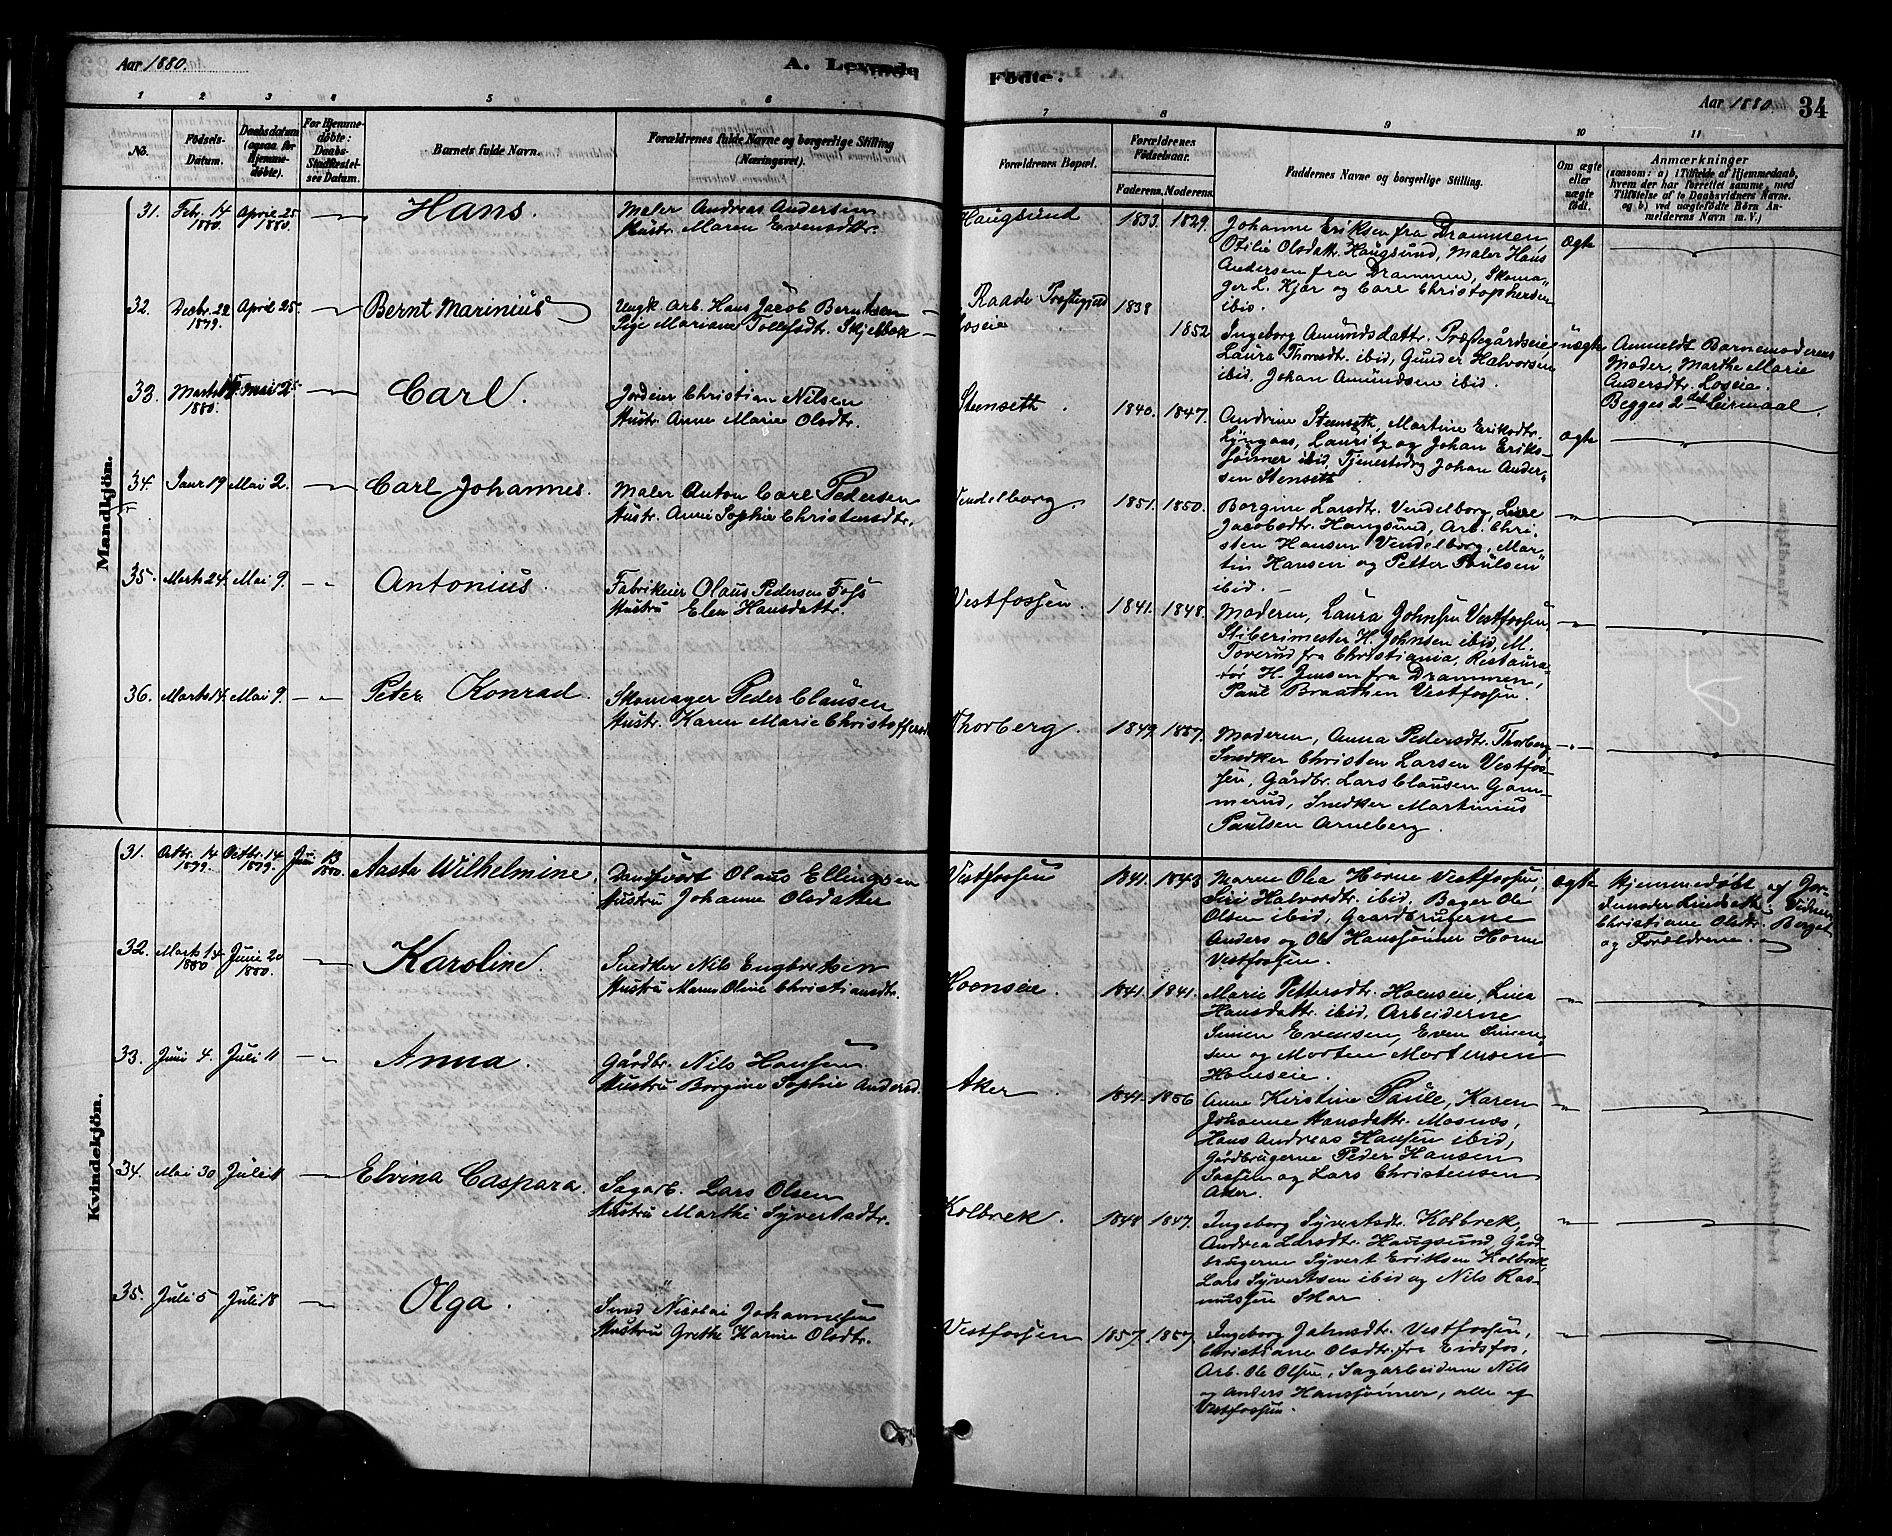 Aar 1880.
A. Levende
Fødte.
Aar 1880.
34
1 2 3 4 5 6 7 8 9 10 11
No.
Fødsels-
Datum.
Daabsdatum
(ogsaa for
Hjemme-
døbte).
For Hjemme-
døbte:
Daabs-
Stadfæstel-
ses Datum.
Barnets fulde Navn.
Forældrenes fulde Navne og borgerlige Stilling
(Næringsvei).
Forældrenes Bopæl.
Forældrenes
Fødselsaar.
Faderens. Moderens.
Faddernes Navne og borgerlige Stilling.
Om ægte
eller
uægte
født.
Anmærkninger
(saasom: a) i Tilfælde af Hjemmedaab,
hvem der har forrettet samme, med
Tilføielse af to Daabsvidners Navne.
og b) ved uægtefødte Børn An-
melderens Navn m. V.)
Mandkjön.
31. Febr. 14 1880. April 25 1880. Hans.
Maler Andreas Andersen
Hustr. Maren Evensdtr.
Haugsund 1833. 1829.
Johanne Eriksen fra Drammen,
Otilie Olsdatt. Haugsund, Maler Hans
Andersen fra Drammen, Skoma-
ger L. Hjør og Carl Christophersen
ibid.
ægte
32. Decbr. 22 1879. April 25. Bernt Marinius
Ungk. Arb. Hans Jacob Berntsen
Pige Mariane Tollefsdt. Skjelbek
Raade Præstegjeld 1838
Loseie 1852
Ingeborg Amundsdatt. Præstegårdseie,
Laura Thorsdt. ibid, Gunder Halvorsen
ibid. Johan Amundsen ibid.
uægte
Anmeldt Barnemoderens
Moder, Marthe Marie
Andersdt. Loseie.
Begges 2det Leirmaal.
33. Marts 1880. Mai 2 Carl.
Jordeier Christian Nilsen
Hustr. Anne Marie Olsdtr.
Stenseth. 1840. 1847.
Andrine Stenseth, Martine Eriksdtr.
Lyngaas, Lauritz og Johan Eriks-
sønner ibid, Tjenestedrg Johan Ander-
sen Stenseth
ægte
34. Janr 19 Mai 2. Carl Johannes.
Maler Anton Carl Pedersen
Hustr. Anne Sophie Christensdtr.
Vendelborg. 1851. 1850.
Borgine Larsdt. Vendelborg, Lise
Jacobsdt. Haugsund, Arb. Chri-
sten Hansen Vendelborg, Mar-
tin Hansen og Petter Paulsen
ibid.
35. Marts 24. Mai 9. Antonius.
Fabrikeier Olaus Pedersen Foss
Hustru Elen Hansdatt.
Vestfossen. 1841. 1848.
Moderen, Laura Johnsen Vestfossen,
Stiberimester H. Johnsen ibid, M.
Toverud fra Christiania, Restaura-
tør H. Jensen fra Drammen,
Paul Braathen Vestfossen
36. Marts 14. Mai 9. Peter Konrad.
Skomager Peder Clausen
Hustr. Karen Marie Christoffersd
Thorberg 1849. 1857.
Moderen, Anna Pedersdt. Thorberg
Snedker Christen Larsen Vestfos-
sen, Gårdbr. Lars Clausen Gom-
merud, Snedker Martinius
Paulsen Arneberg.
Kvindekjön.
31. Octbr. 14 1879. Octbr. 14 1879. Juni 13 1880. Aasta Wilhelmine
Olaus Ellingsen
Hustru Johanne Olsdatter
Vestfossen 1841. 1843
Maren Olea Horne Vestfossen,
Siri Halvorsdt. ibid, Bager Ole
Olsen ibid, Gaardbrugerne
Anders og Ole Hanssønner Horne
Vestfossen.
ægte
Hjemmedøbt af Jor-
Christiane Olsdt. Berget
og Forældrene.
32. Marts 14 1880 Juni 20 1880. Karoline.
Snedker Nils Engbretsen
Hustru Maren Oline Christiansdt.
Hoenseie. 1841. 1841.
Marie Pettersdt. Hoenseie, Lina
Hansdatt. ibid, Arbeiderne
Simen Evensen, Even Simen-
sen og Morten Mortensen
Hoenseie.
33. Juni 4. Juli 11 Anna.
Gårdbr. Nils Hansen
Hustru Borgine Sophie Andersd.
Aker 1841. 1856
Anne Kirstine Paule, Karen
Johanne Hansdatt. Mosnæs,
Hans Andreas Hansen ibid,
Gårdbrugerne Peder Hansen
og Lars Christensen
Aker.
34. Mai 30 Juli 11 Elvina Caspara.
Sagarb. Lars Olsen
Hustru Marthe Syvertsdtr.
Kolbrek. 1848 1847.
Ingeborg Syvertsdt. Kolbrek,
Andrea Larsdt. Haugsund, Gård-
brugerne Syvert Eriksen Kolbrek,
Lars Syvertsen ibid og Nils Ras-
mussen Skar.
35. Juli 5 Juli 18 Olga.
Smed Nicolai Johannesen
Hustru Grethe Karine Olsdtr.
Vestfossen 1857. 1857.
Ingeborg Jahnsdt. Vestfossen,
Christiane Olsdtr. fra Eidsfos,
Arb. Ole Olsen, Sagarbeiderne Nils
og Anders Hanssønner, alle af
Vestfossen.